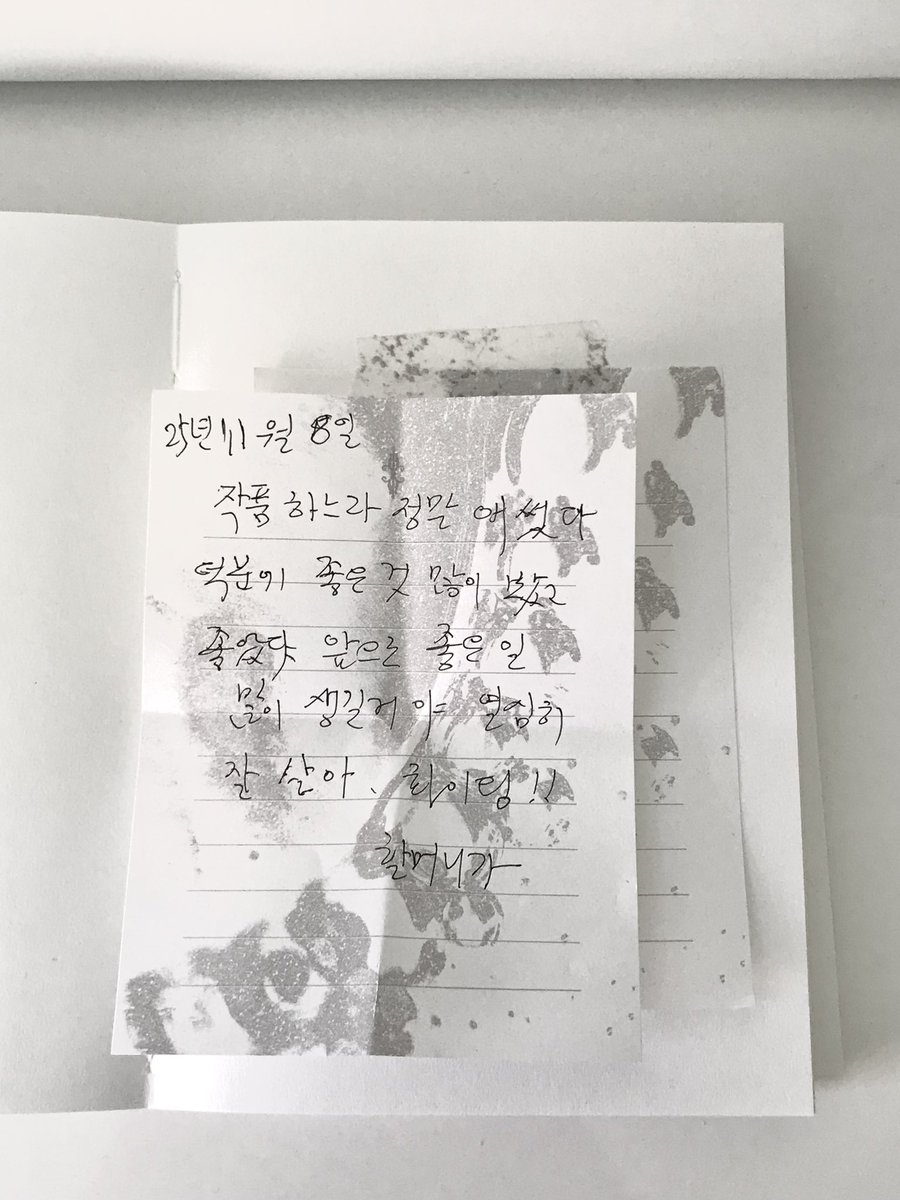 25년 11월 8일
작품 하느라 정말 애썼다
덕분에 좋은 것 많이 봤고
좋았다 앞으로 좋은 일
많이 생길거야 열심히
잘 살아. 화이팅!!
할머니가